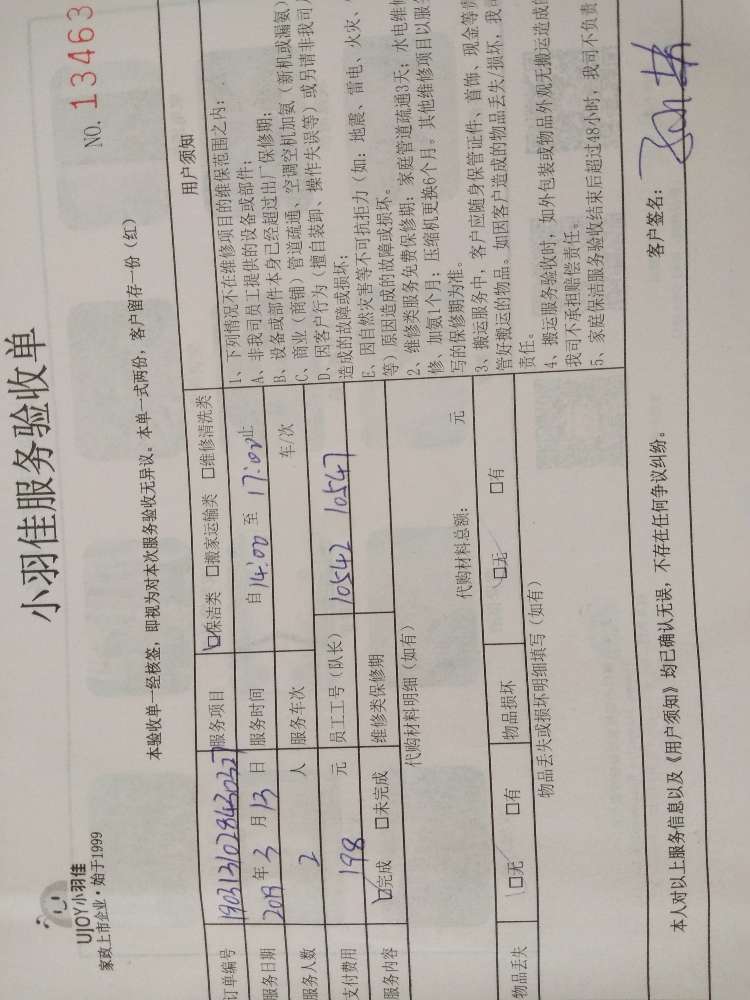 UJOY小羽佳
家政上市企业·始于1999
小羽佳服务验收单
NO. 13463
本验收单一经核签，即视为对本次服务验收无异议。本单一式两份，客户留存一份（红）
订单编号 服务项目 ☑保洁类 □搬家运输类 □维修清洗类
服务日期 2019年 3 月 13 日 服务时间 自 14:00 至 17:00止
服务人数 2 人 服务车次 车/次
支付费用 198 元 员工工号（队长） 10542 10547
服务内容 ☑完成 □未完成 维修类保修期
代购材料明细（如有）
代购材料总额： 元
物品丢失 □无 □有 物品损坏 □无 □有
物品丢失或损坏明细填写（如有）
用户须知
1、下列情况不在维修项目的维保范围之内：
A、非我司员工提供的设备或部件；
B、设备或部件本身已经超过出厂保修期；
C、商业（商铺）管道疏通、空调空机加氨（新机或漏氨）
D、因客户行为（擅自装卸、操作失误等）或另请非我司
造成的故障或损坏；
E、因自然灾害等不可抗拒力（如：地震、雷电、火灾、
等）原因造成的故障或损坏。
2、维修类服务免费保修期：家庭管道疏通3天；水电维
修、加氨1个月；压缩机更换6个月。其他维修项目以服
写的保修期为准。
3、搬运服务中，客户应随身保管证件、首饰、现金等
管好搬运的物品。如因客户造成的物品丢失/损坏，我
责任。
4、搬运服务验收时，如外包装或物品外观无搬运造成
我司不承担赔偿责任。
5、家庭保洁服务验收结束后超过48小时，我司不负责
本人对以上服务信息以及《用户须知》均已确认无误，不存在任何争议纠纷。
客户签名：